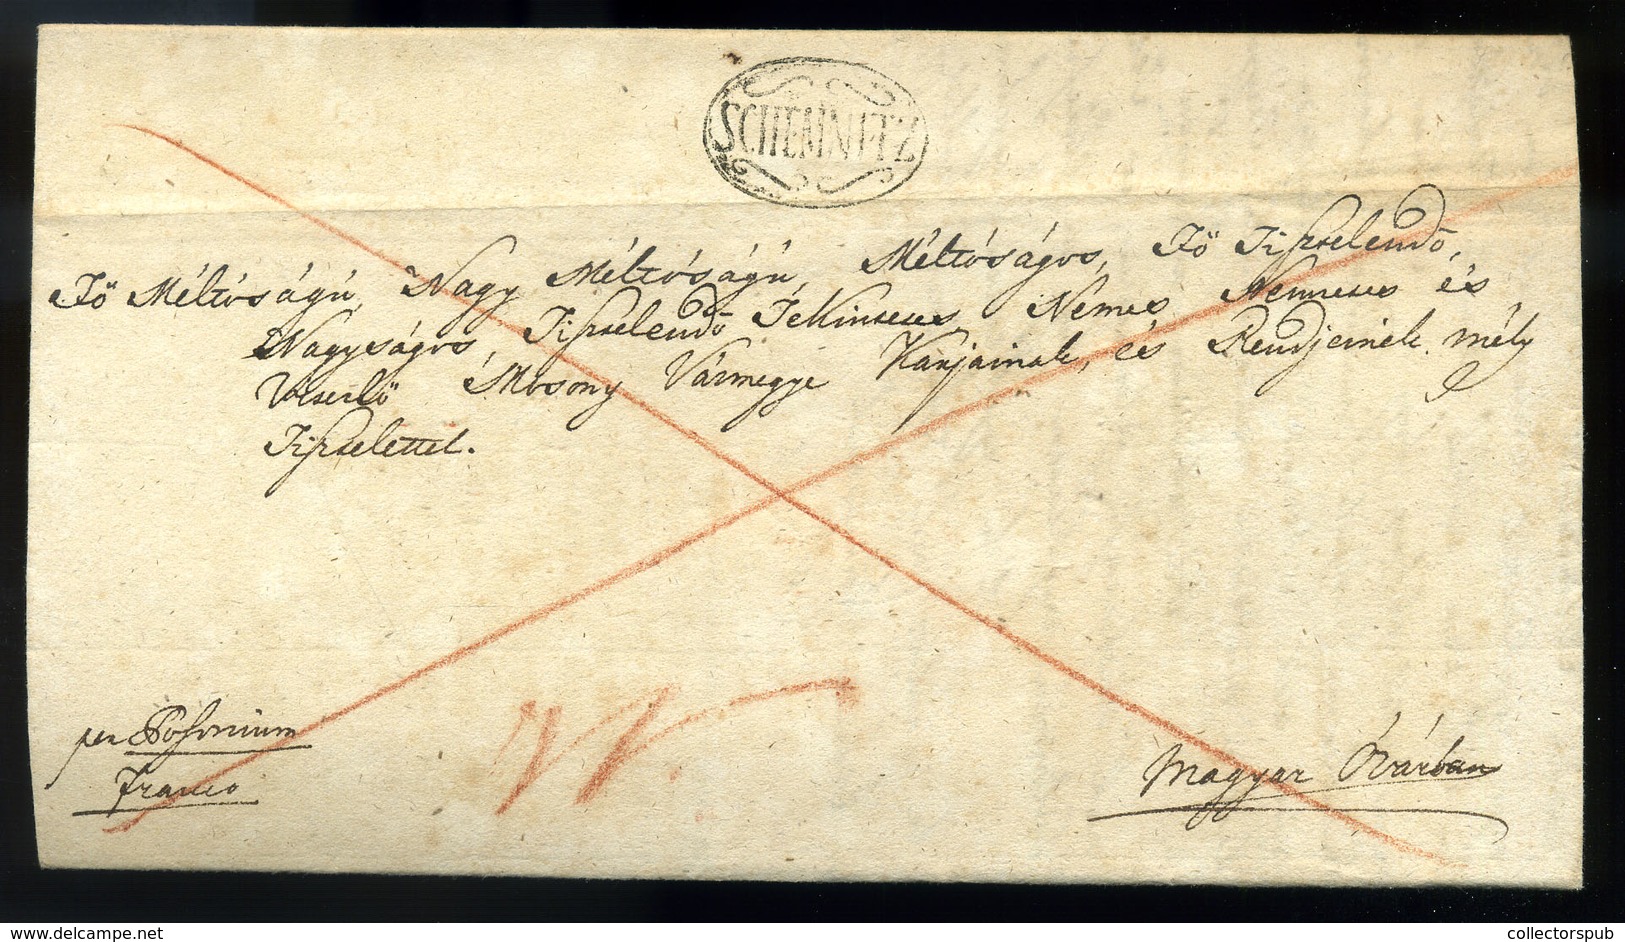 SCHEMNITZ
Fő Méltóságú, Nagy Méltóságú, Méltóságos, Fő Tisztelendő,
Nagyságos, Tisztelendő Tekintetes, Nemes Nemzetes és
Vitézlő Mosony Vármegye Karjainak, és Rendjeinek mély
Tisztelettel.
per Posonium
Franco
Magyar Óvárban
www.darabanth.com
collectorspub